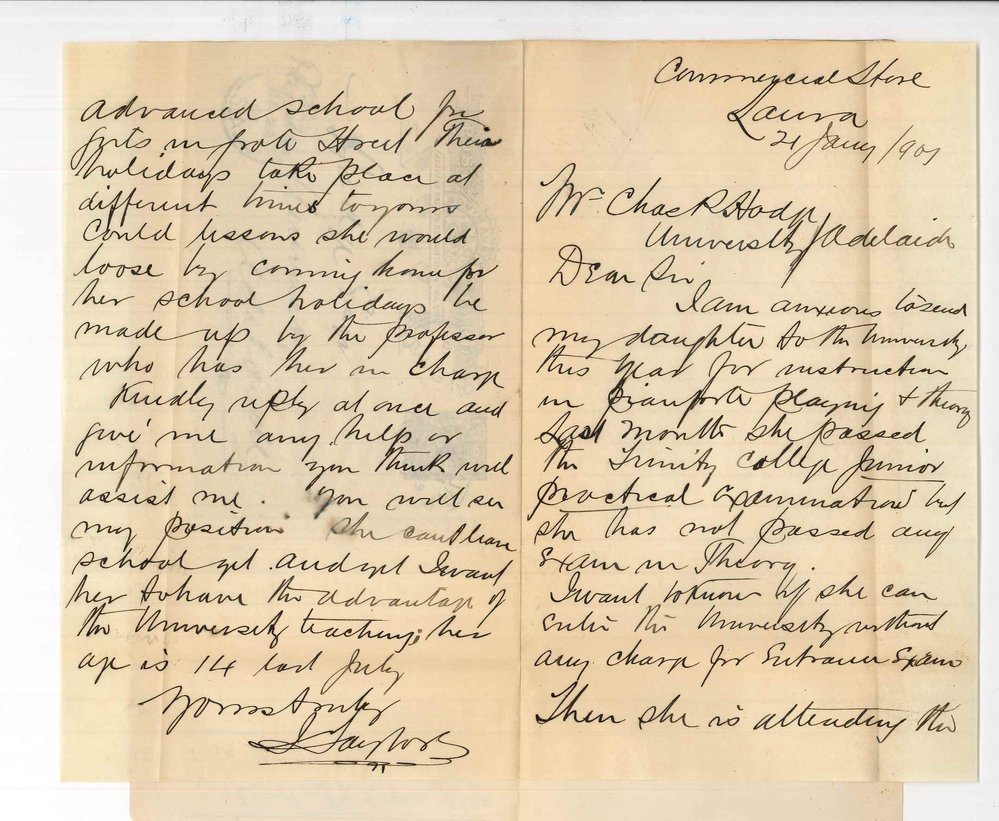 Commercial Store
Laura
21 Jany 1901
Mr Chas R Hodge
University Adelaide
Dear Sir
I am anxious to send
my daughter to the University
this year for instruction
in pianforte playing & theory
Last month she passed
the Trinity College Junior
practical examination but
she has not passed any
Exam in Theory.
I want to know if she can
enter the University without
any charge for Entrance Exam
Then she is attending the
advanced school for
girls in Grote Street Their
holidays take place at
different times to yours
Could lessons she would
loose by coming home for
her school holidays be
made up by the professor
who has her in charge
Kindly reply at once and
give me any help or
information you think will
assist me. You will see
my position she cant leave
school yet and yet I want
her to have the advantage of
the University teaching, her
age is 14 last July
Yours truly